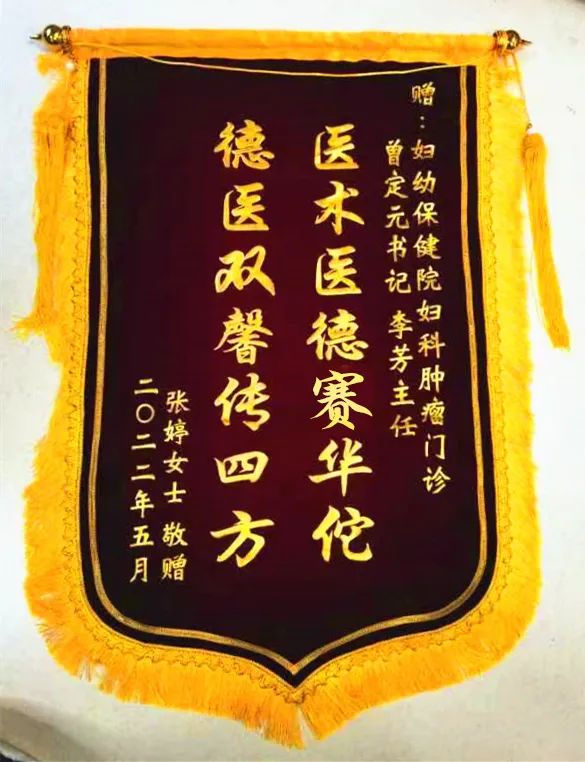 赠：妇幼保健院妇科肿瘤门诊
曾定元书记 李芳主任
医术医德赛华佗
德医双馨传四方
张婷女士 敬赠
二〇二二年五月